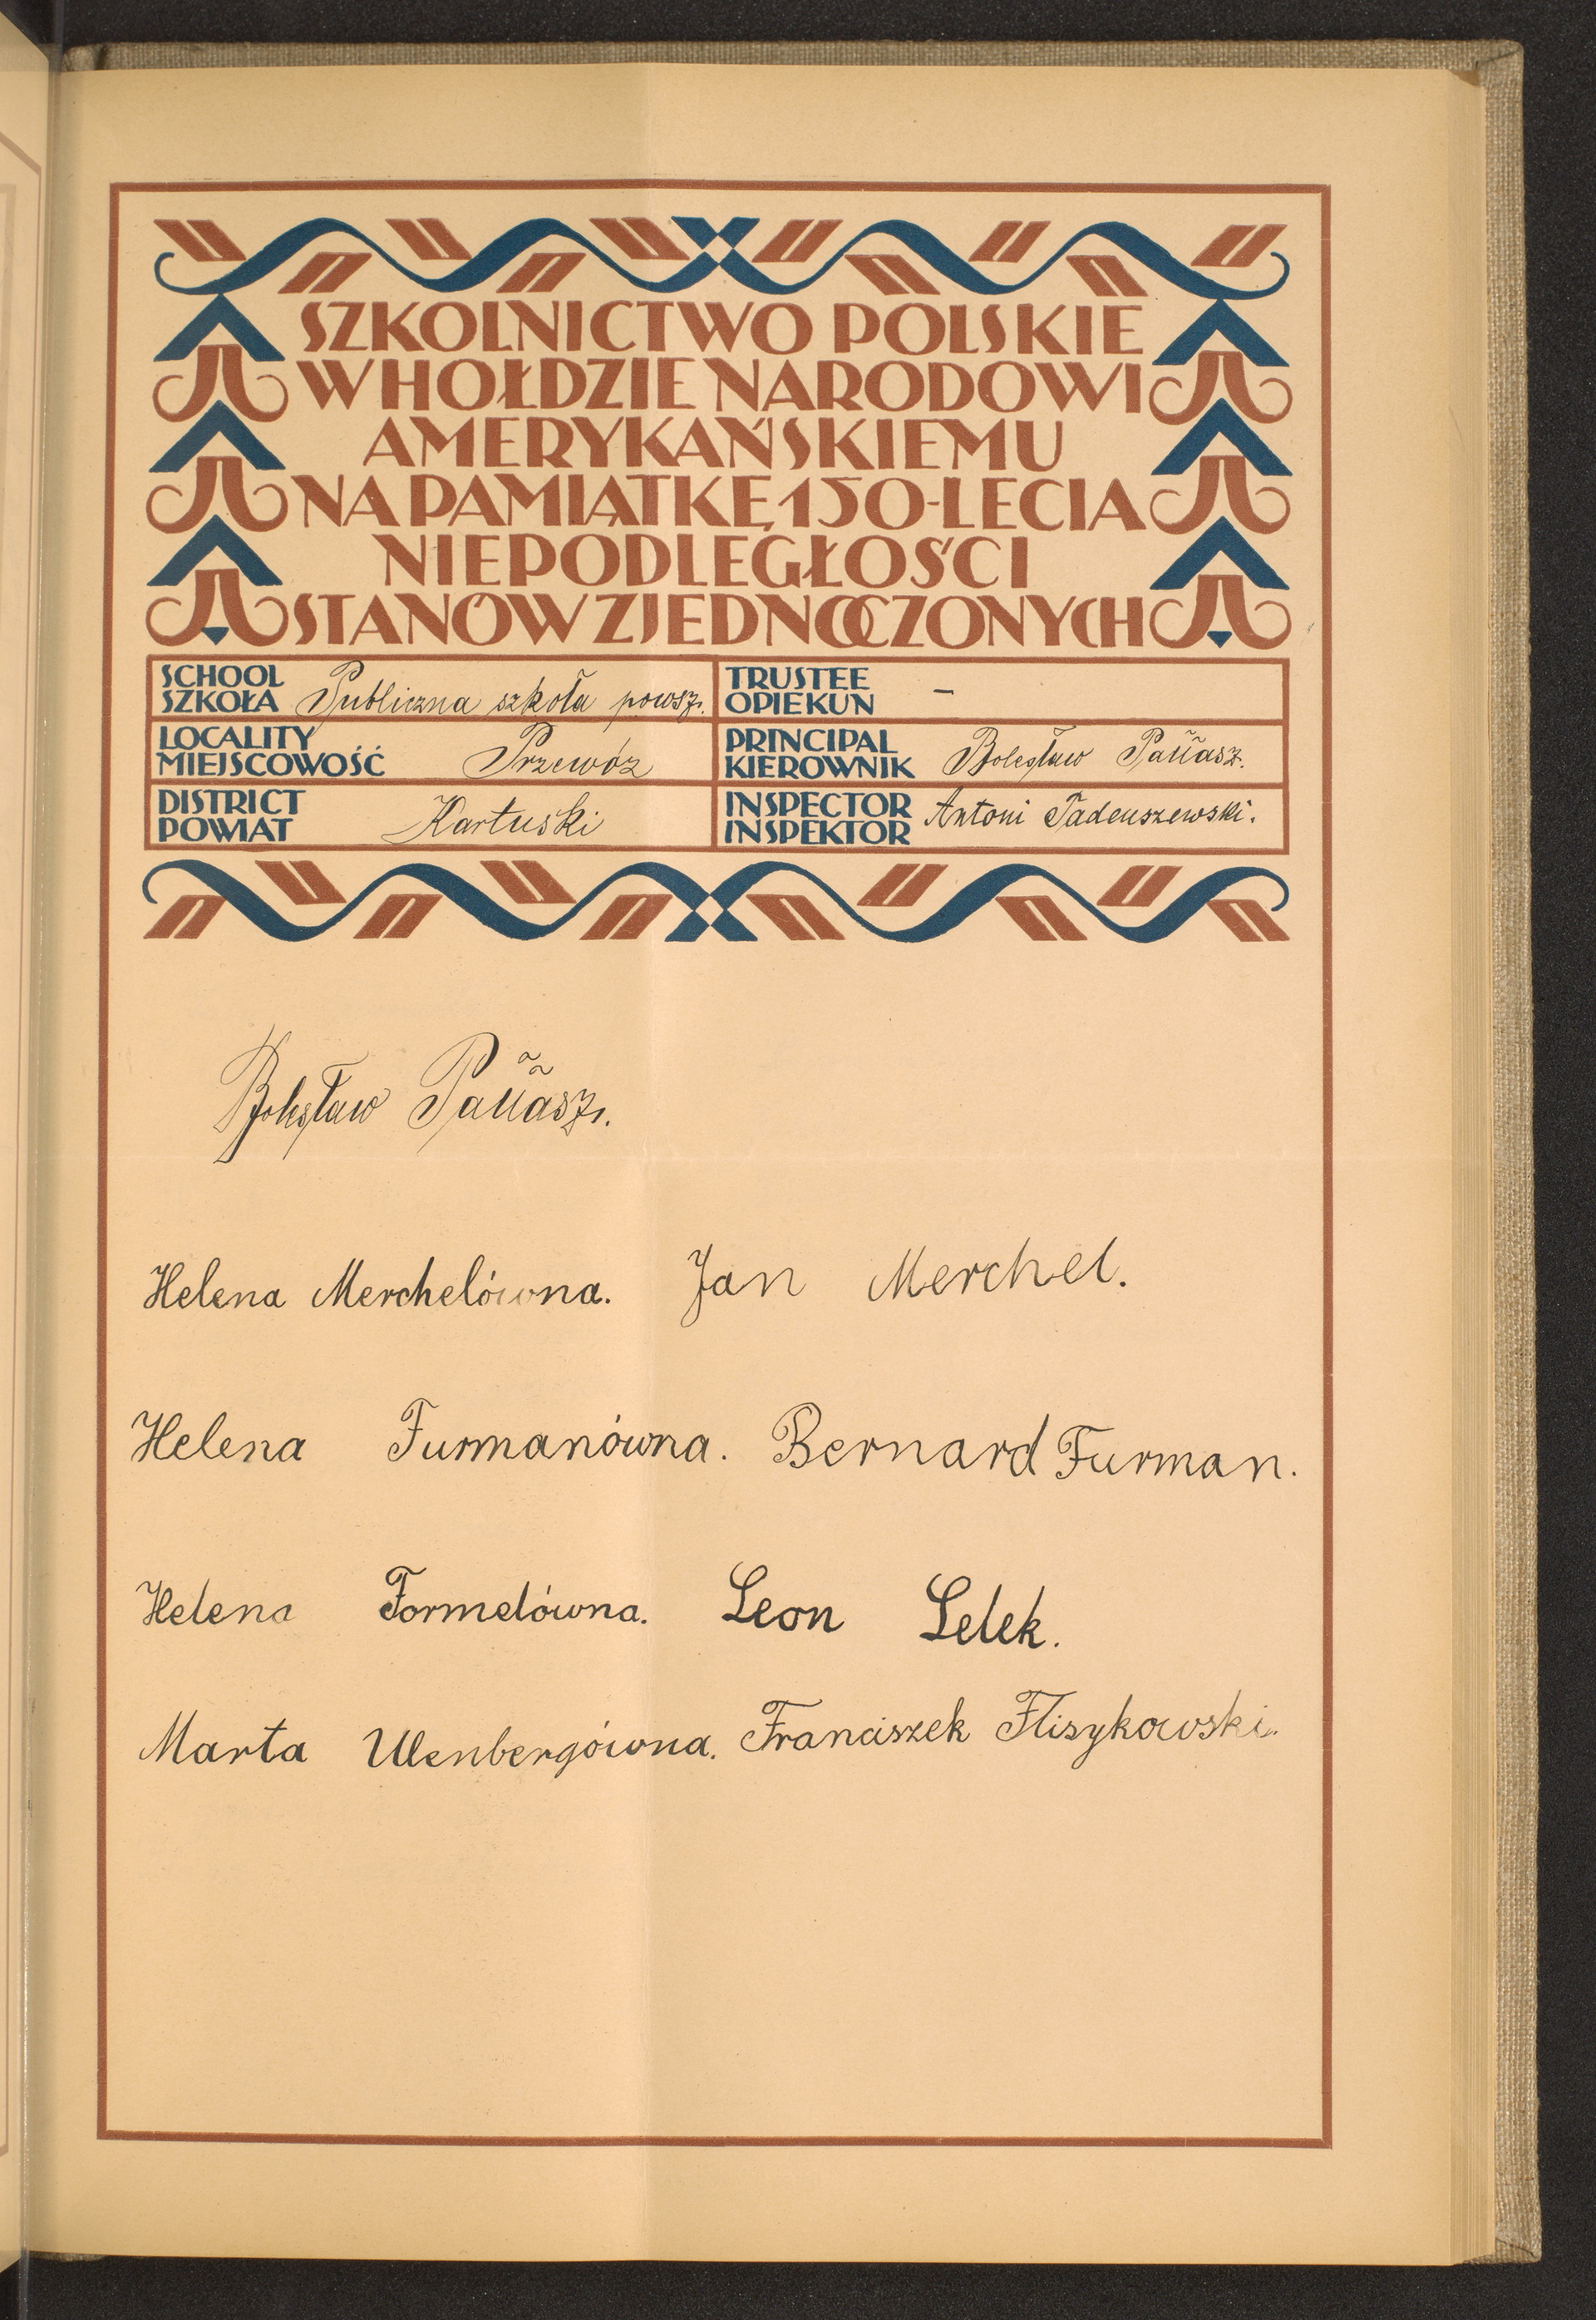 SZKOLNICTWO POLSKIE
W HOŁDZIE NARODOWI
AMERYKAŃSKIEMU
NA PAMIĄTKĘ 150-LECIA
NIEPODLEGŁOŚCI
STANÓW ZJEDNOCZONYCH
SCHOOL
SZKOŁA Publiczna szkoła powsz.
TRUSTEE
OPIEKUN –
LOCALITY
MIEJSCOWOŚĆ Przewóz
PRINCIPAL
KIEROWNIK Bolesław Pałłasz.
DISTRICT
POWIAT Kartuski
INSPECTOR
INSPEKTOR Antoni Tadeuszewski.
Bolesław Pałłasz.
Helena Merchelówna. Jan Merchel.
Helena Furmanówna. Bernard Furman.
Helena Formelówna. Leon Lelek.
Marta Ulenbergówna. Franciszek Flisykowski.